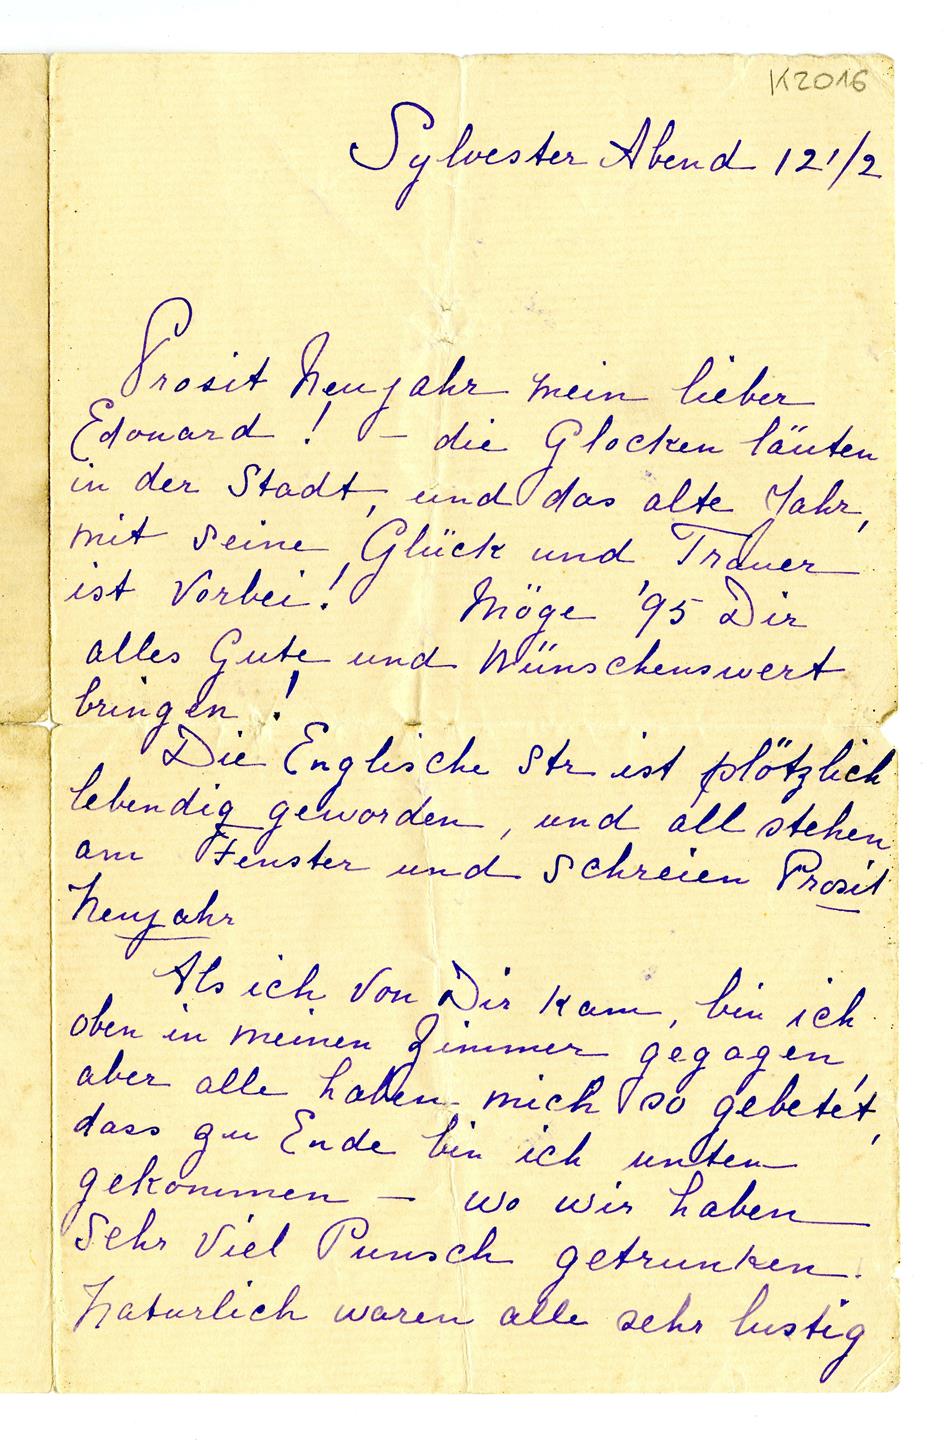 K2016
Sylvester Abend 12 1/2
Prosit Neujahr mein lieber
Edouard ! – die Glocken läuten
in der Stadt, und das alte Jahr,
mit seine Glück und Trauer
ist vorbei! Möge '95 Dir
alles Gute und Wünschenswert
bringen !
Die Englische Str ist plötzlich
lebendig geworden, und all stehen
am Fenster und schreien Prosit
Neujahr
Als ich von Dir kam, bin ich
oben in meinen Zimmer gegagen,
aber alle haben mich so gebetet,
dass zu Ende bin ich unten
gekommen – wo wir haben
sehr viel Punsch getrunken.
Naturlich waren alle sehr lustig